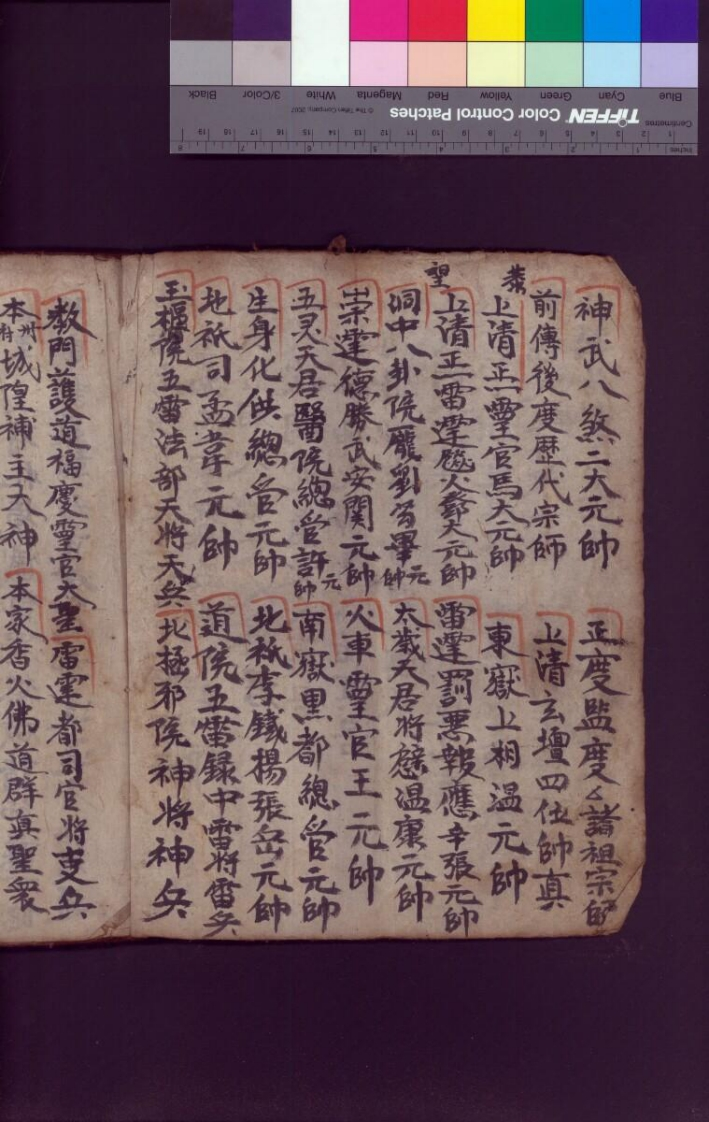 神武八煞二大元帥　正度監度〻諸祖宗師
前傳後度歷代宗師　上清玄壇四位帥真
恭
上清正一靈官馬大元帥　東嶽上相温元帥
望
上清正一雷霆飈火鄧大元帥　雷霆罰悪報應辛張元帥
洞中八卦院龐劉苟畢元帥　太歲天君將慇温康元帥
崇寧德勝武安関元帥　火車靈官王元帥
五灵天君醫院總管許元帥　南嶽黒都總管元帥
生身化供總管元帥　北祇李鐵楊張岳元帥
地祇司孟韋元帥　道院五雷録中雷将雷兵
玉樞院五雷法部天将天兵　北極邪院神将神兵
教門護道福慶靈官大聖　雷霆都司官将吏兵
本州府城隍補主大神　本家香火佛道群真聖衆
Blue Cyan Green Yellow Red Magenta White 3/Color Black
TIFFEN Color Control Patches
© The Tiffen Company, 2007
Centimetres
Inches